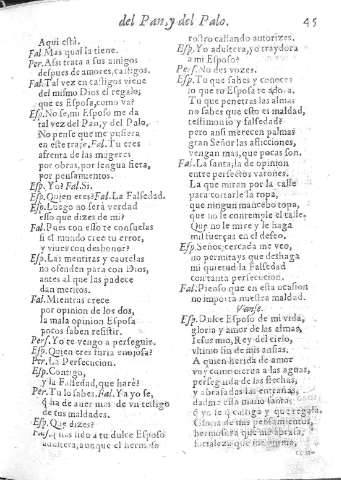 del Pan, y del Palo. 45
Aqui està.
Fal. Mas qual la tiene.
Per. Assi trata a sus amigos
despues de amores, castigos.
Fal. Tal vez en castigos viene
del mismo Dios el regalo;
que es Esposa, como va?
Esp. No se, mi Esposo me da
tal vez del Pan, y del Palo,
No pense que me pusiera
en este traje. Fal. Tu eres
afrenta de las mugeres
por obras, por lengua fiera,
por pensamientos.
Esp. Yo? Fal. Si.
Esp. Quien eres? Fal. La Falsedad.
Esp. Luego no serà verdad
esso que dizes de mi?
Fal. Pues con esso te consuelas
si el mundo cree tu error,
y viues con deshonor?
Esp. Las mentiras y cautelas
no ofenden para con Dios,
antes al que las padece
dan meritos.
Fal. Mientras crece
por opinion de los dos,
la mala opinion Esposa
pocos saben resistir.
Pers. Yo te vengo a perseguir.
Esp. Quien eres furia enojosa?
Per. La Persecucion.
Esp. Contigo,
y la Falsedad, que harè?
Per. Tu lo sabes. Fal. Ya yo se,
q̃ ha de auer mas de vn testigo
de tus maldades.
Esp. Que dizes?
has sido a tu dulce Esposo
adultera, aunque el hermoso
rostro callando autorizes.
Esp. Yo adultera, yo traydora
a mi Esposo?
Pers. No des vozes.
Esp. Tu que sabes y conoces
lo que tu Esposa te adora.
Tu que penetras las almas
no sabes que esto es maldad,
testimonio y falsedad?
pero ansi merecen palmas
gran Señor las aflicciones,
vengan mas, que pocas son.
Fal. La santa, la de opinion
entre perfectos varones.
La que miran por la calle
para cortarle la ropa,
que ningun mancebo topa,
que no le contemple el talle.
Que no le mire y le haga
mil fuerças en el deseo.
Esp. Señor, cercada me veo,
no permitays que deshaga
mi quietud la Falsedad
con tanta persecucion.
Fal. Pienso que en esta ocasion
no importa nuestra maldad.
Vanse.
Esp. Dulce Esposo de mi vida,
gloria y amor de las almas,
Iesus mio, Rey del cielo,
vltimo fin de mis ansias.
A quien herida de amor
voy como cierua a las aguas,
perseguida de las flechas,
y abrasadas las entrañas,
dadme essa mano santa;
ò yo le q̃ castiga y que regala,
Gloria de mis pensamientos,
hermosura que me abrasa,
fortaleza que me anima,